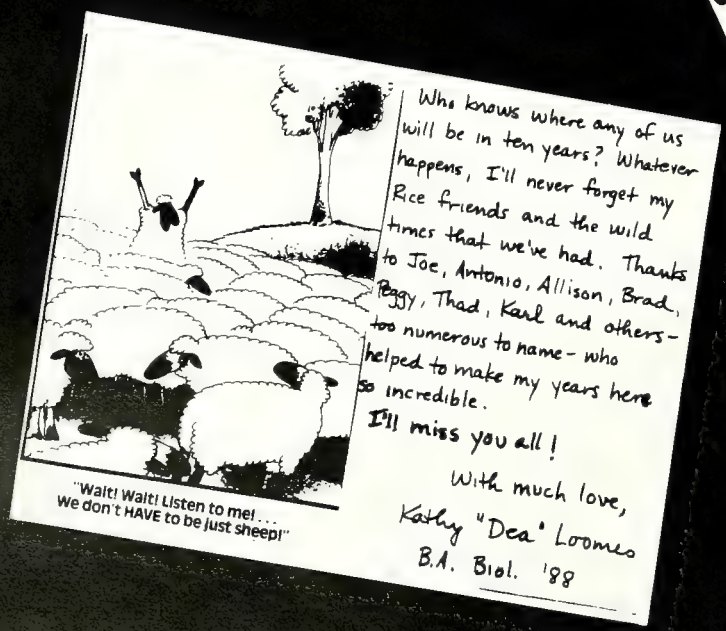 "Wait! Wait! Listen to me! ...
We don't HAVE to be just sheep!"
Who knows where any of us
will be in ten years? Whatever
happens, I'll never forget my
Rice friends and the wild
times that we've had. Thanks
to Joe, Antonio, Allison, Brad,
Peggy, Thad, Karl and others-
too numerous to name - who
helped to make my years here
so incredible.
I'll miss you all!
With much love,
Kathy "Dea" Loomes
B.A. Biol. '88